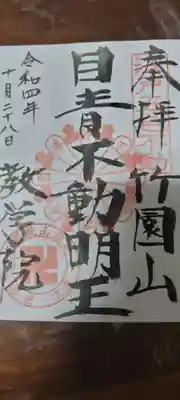 奉拝
竹園山
目青不動明王
教学院
令和四年
十月二十八日